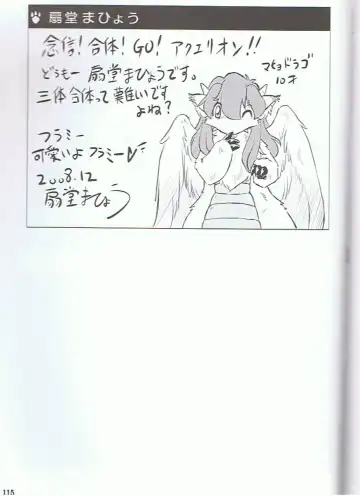 扇堂 まひょう
念信! 合体! GO! アクエリオン!!
どうもー 扇堂まひょうです。
三体合体って難しいです
よね?
マヒョドラゴ
10才
フラミー
可愛いよ フラミー
2008.12
扇堂まひょう
115